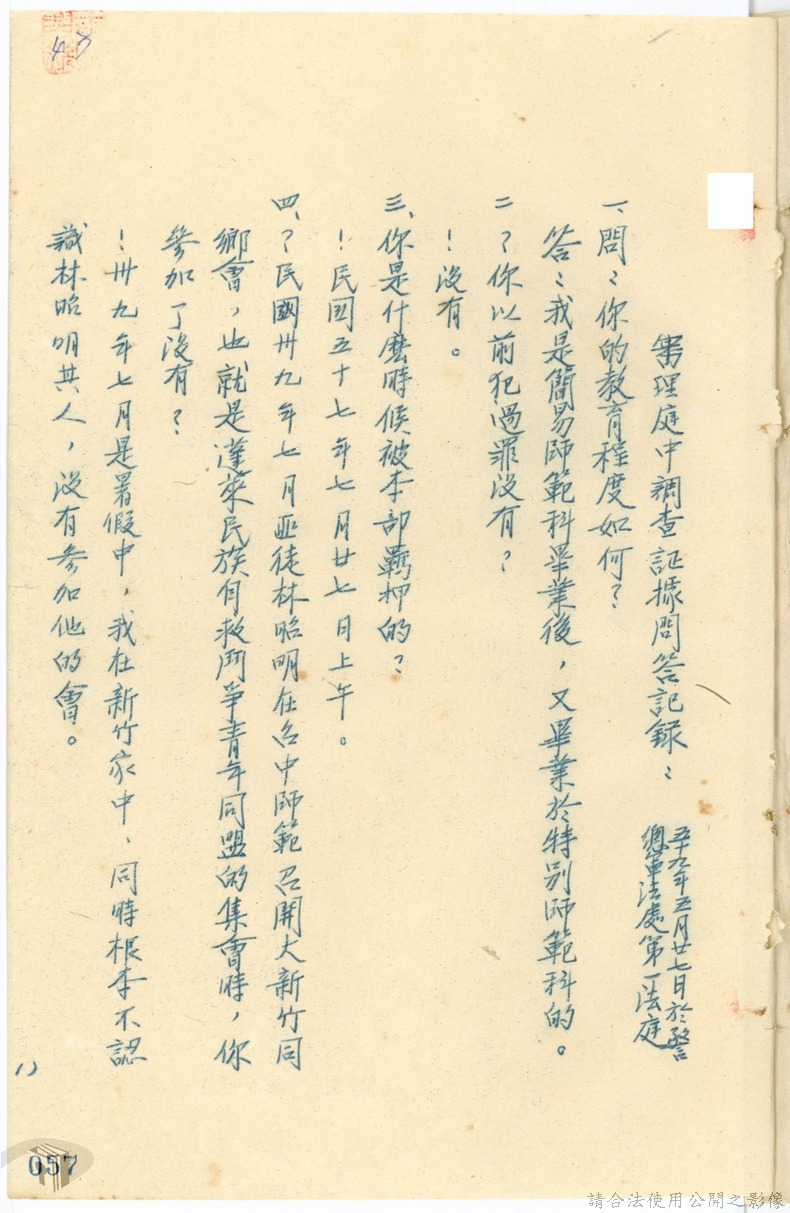 審理庭中調查証據問答記録：
五十九年五月廿七日於警
總軍法處第一法庭
一、問：你的教育程度如何？
答：我是簡易師範科畢業後，又畢業於特別師範科的。
二？你以前犯過罪没有？
！没有。
三、你是什麼時候被李部羈押的？
！民国五十七年七月廿七日上午。
四、？民國卅九年七月匪徒林昭明在台中師範召開大新竹同
鄉會，也就是蓬萊民族自救鬥爭青年同盟的集會時，你
參加了没有？
！卅九年七月是暑假中，我在新竹家中、同時根李不認
識林昭明其人，没有參加他的會。
1)
057
請合法使用公開之影像